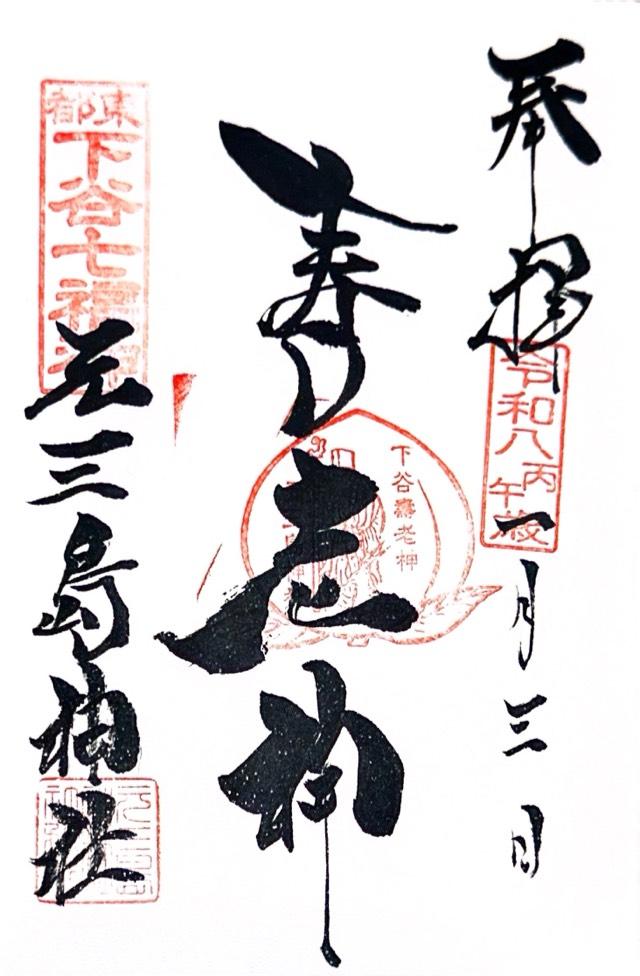 奉拝
令和八丙午歳
一月三日
寿老神
下谷壽老神
東都
下谷七福神
元三島神社